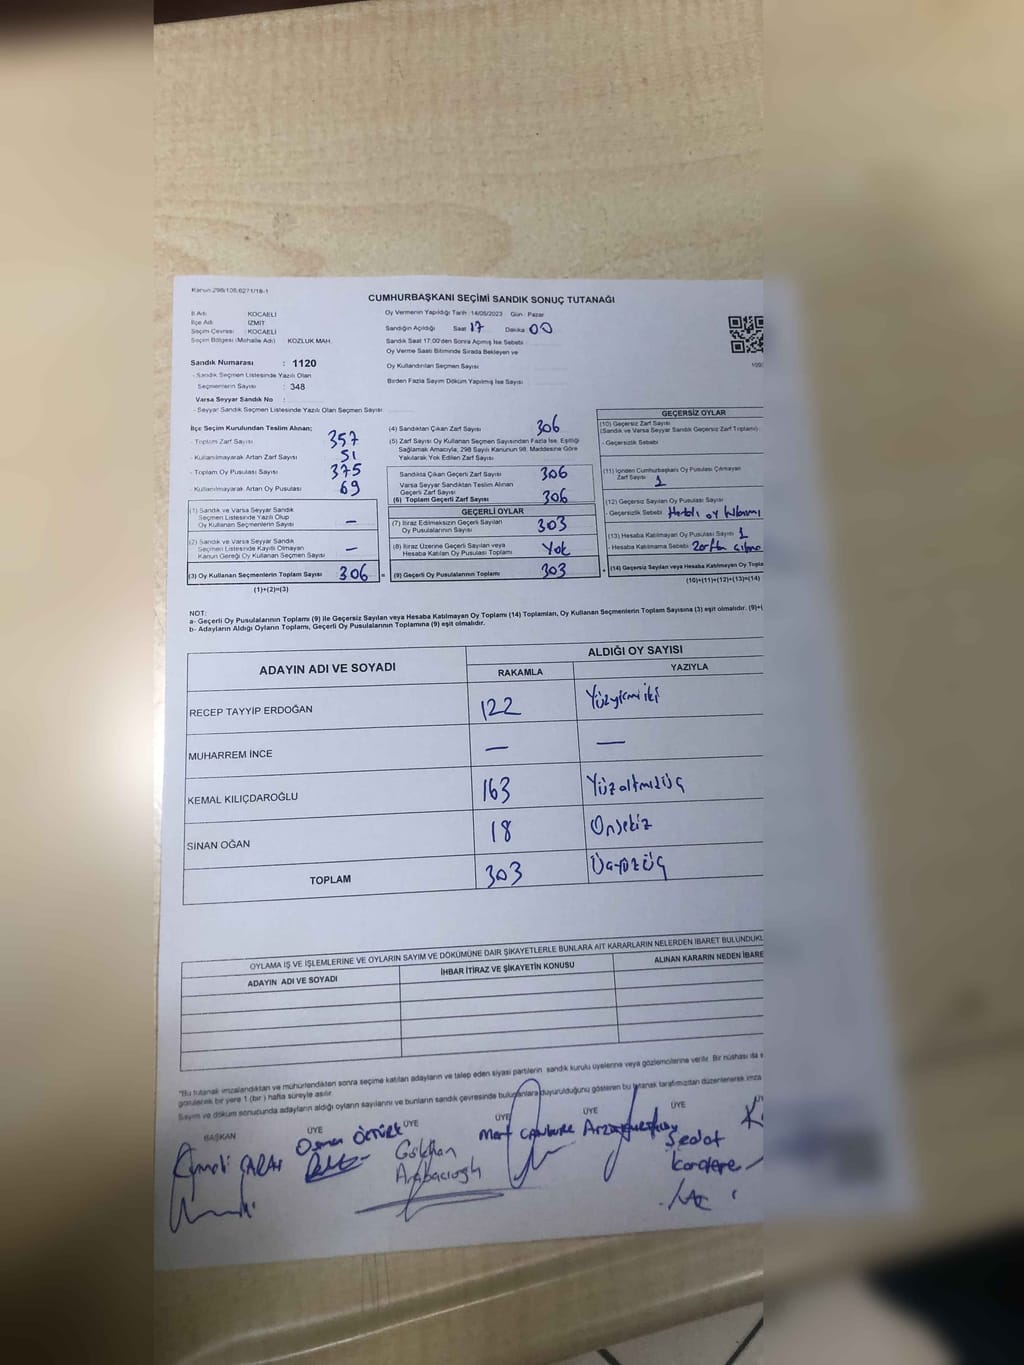 Kanun:298/106;6271/18-1
CUMHURBAŞKANI SEÇİMİ SANDIK SONUÇ TUTANAĞI
İl Adı : KOCAELİ
İlçe Adı : İZMİT
Seçim Çevresi : KOCAELİ
Seçim Bölgesi (Mahalle Adı) : KOZLUK MAH.
Sandık Numarası : 1120
- Sandık Seçmen Listesinde Yazılı Olan
Seçmenlerin Sayısı : 348
Varsa Seyyar Sandık No :
- Seyyar Sandık Seçmen Listesinde Yazılı Olan Seçmen Sayısı:
Oy Vermenin Yapıldığı Tarih : 14/05/2023 Gün : Pazar
Sandığın Açıldığı Saat 17 Dakika 00
Sandık Saat 17:00'den Sonra Açmış İse Sebebi
Oy Verme Saati Bitiminde Sırada Bekleyen ve
Oy Kullandırılan Seçmen Sayısı
Birden Fazla Sayım Döküm Yapılmış İse Sayısı
İlçe Seçim Kurulundan Teslim Alınan;
- Toplam Zarf Sayısı 357
- Kullanılmayarak Artan Zarf Sayısı 51
- Toplam Oy Pusulası Sayısı 375
- Kullanılmayarak Artan Oy Pusulası 69
(1) Sandık ve Varsa Seyyar Sandık
Seçmen Listesinde Yazılı Olup
Oy Kullanan Seçmenlerin Sayısı —
(2) Sandık ve Varsa Seyyar Sandık
Seçmen Listesinde Kayıtlı Olmayan
Kanun Gereği Oy Kullanan Seçmen Sayısı —
(3) Oy Kullanan Seçmenlerin Toplam Sayısı 306 =
(1)+(2)=(3)
(4) Sandıktan Çıkan Zarf Sayısı 306
(5) Zarf Sayısı Oy Kullanan Seçmen Sayısından Fazla İse, Eşitliği
Sağlamak Amacıyla, 298 Sayılı Kanunun 98. Maddesine Göre
Yakılarak Yok Edilen Zarf Sayısı
Sandıkta Çıkan Geçerli Zarf Sayısı 306
Varsa Seyyar Sandıktan Teslim Alınan
Geçerli Zarf Sayısı
(6) Toplam Geçerli Zarf Sayısı 306
GEÇERLİ OYLAR
(7) İtiraz Edilmeksizin Geçerli Sayılan
Oy Pusulalarının Sayısı 303
(8) İtiraz Üzerine Geçerli Sayılan veya
Hesaba Katılan Oy Pusulası Toplamı Yok
(9) Geçerli Oy Pusulalarının Toplamı 303 +
GEÇERSİZ OYLAR
(10) Geçersiz Zarf Sayısı
(Sandık ve Varsa Seyyar Sandık Geçersiz Zarf Toplamı)
- Geçersizlik Sebebi
(11) İçinden Cumhurbaşkanı Oy Pusulası Çıkmayan
Zarf Sayısı 1
(12) Geçersiz Sayılan Oy Pusulası Sayısı
- Geçersizlik Sebebi Hatalı oy
(13) Hesaba Katılmayan Oy Pusulası Sayısı 1
- Hesaba Katılmama Sebebi Zarftan
(14) Geçersiz Sayılan veya Hesaba Katılmayan Oy
(10)+(11)+(12)+(13)=(14)
NOT:
a- Geçerli Oy Pusulalarının Toplamı (9) ile Geçersiz Sayılan veya Hesaba Katılmayan Oy Toplamı (14) Toplamları, Oy Kullanan Seçmenlerin Toplam Sayısına (3) eşit olmalıdır. (9)+(
b- Adayların Aldığı Oyların Toplamı, Geçerli Oy Pusulalarının Toplamına (9) eşit olmalıdır.
ADAYIN ADI VE SOYADI
ALDIĞI OY SAYISI
RAKAMLA YAZIYLA
RECEP TAYYİP ERDOĞAN 122 Yüzyirmi iki
MUHARREM İNCE — —
KEMAL KILIÇDAROĞLU 163 Yüzaltmışüç
SİNAN OĞAN 18 Onsekiz
TOPLAM 303 Üçyüzüç
OYLAMA İŞ VE İŞLEMLERİNE VE OYLARIN SAYIM VE DÖKÜMÜNE DAİR ŞİKAYETLERLE BUNLARA AİT KARARLARIN NELERDEN İBARET
ADAYIN ADI VE SOYADI İHBAR İTİRAZ VE ŞİKAYETİN KONUSU ALINAN KARARIN NEDEN İBARE
"Bu tutanak imzalandıktan ve mühürlendikten sonra seçime katılan adayların ve talep eden siyasi partilerin sandık kurulu üyelerine veya gözlemcilerine verilir. Bir nüshası da
görülecek bir yere 1 (bir) hafta süreyle asılır.
Sayım ve döküm sonucunda adayların aldığı oyların sayılarını ve bunların sandık çevresinde bulunanlara duyurulduğunu gösteren bu tutanak tarafımızdan düzenlenerek imza
BAŞKAN ÜYE ÜYE ÜYE ÜYE ÜYE
Osman ÖZTÜRK
Gökhan
Arabacıoğlu
Mert
Sedat
Karadere